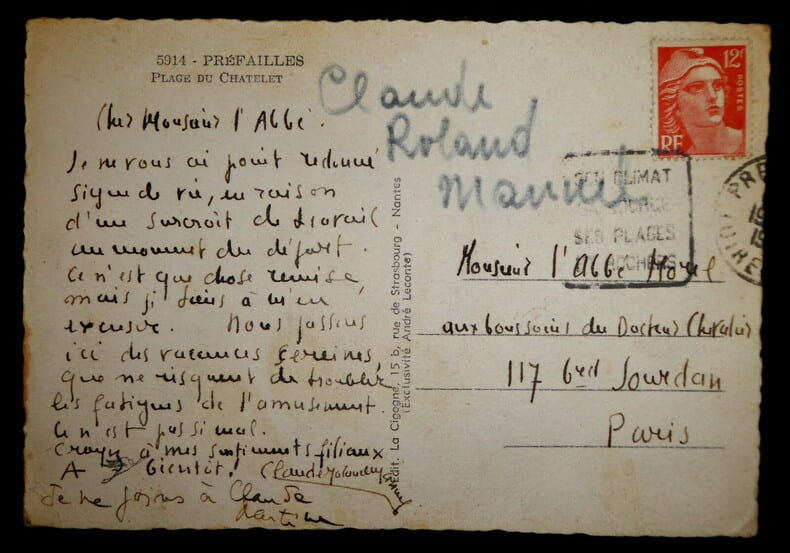 5914 - PRÉFAILLES
PLAGE DU CHATELET
Cher Monsieur l'Abbé.
Je ne vous ai point redonné
signe de vie, en raison
d'un surcroit de travail
au moment du départ.
Ce n'est que chose remise
mais je tiens à m'en
excuser. Nous passons
ici des vacances sereines,
que ne risquent de troubler
les fatigues de l'amusement.
Ce n'est pas si mal.
Croyez à mes sentiments filiaux
A bientôt!
Je me joins à Claude
Martine
Claude
Roland
Manuel
Edit. La Cigogne, 15 b, rue de Strasbourg - Nantes
(Exclusivité André Leconte)
12F
POSTES
RF
CLIMAT
SOURCE
SES PLAGES
ROCHERS
Monsieur l'Abbé
aux bons soins du Docteur Chevalier
117 bvd Jourdan
Paris